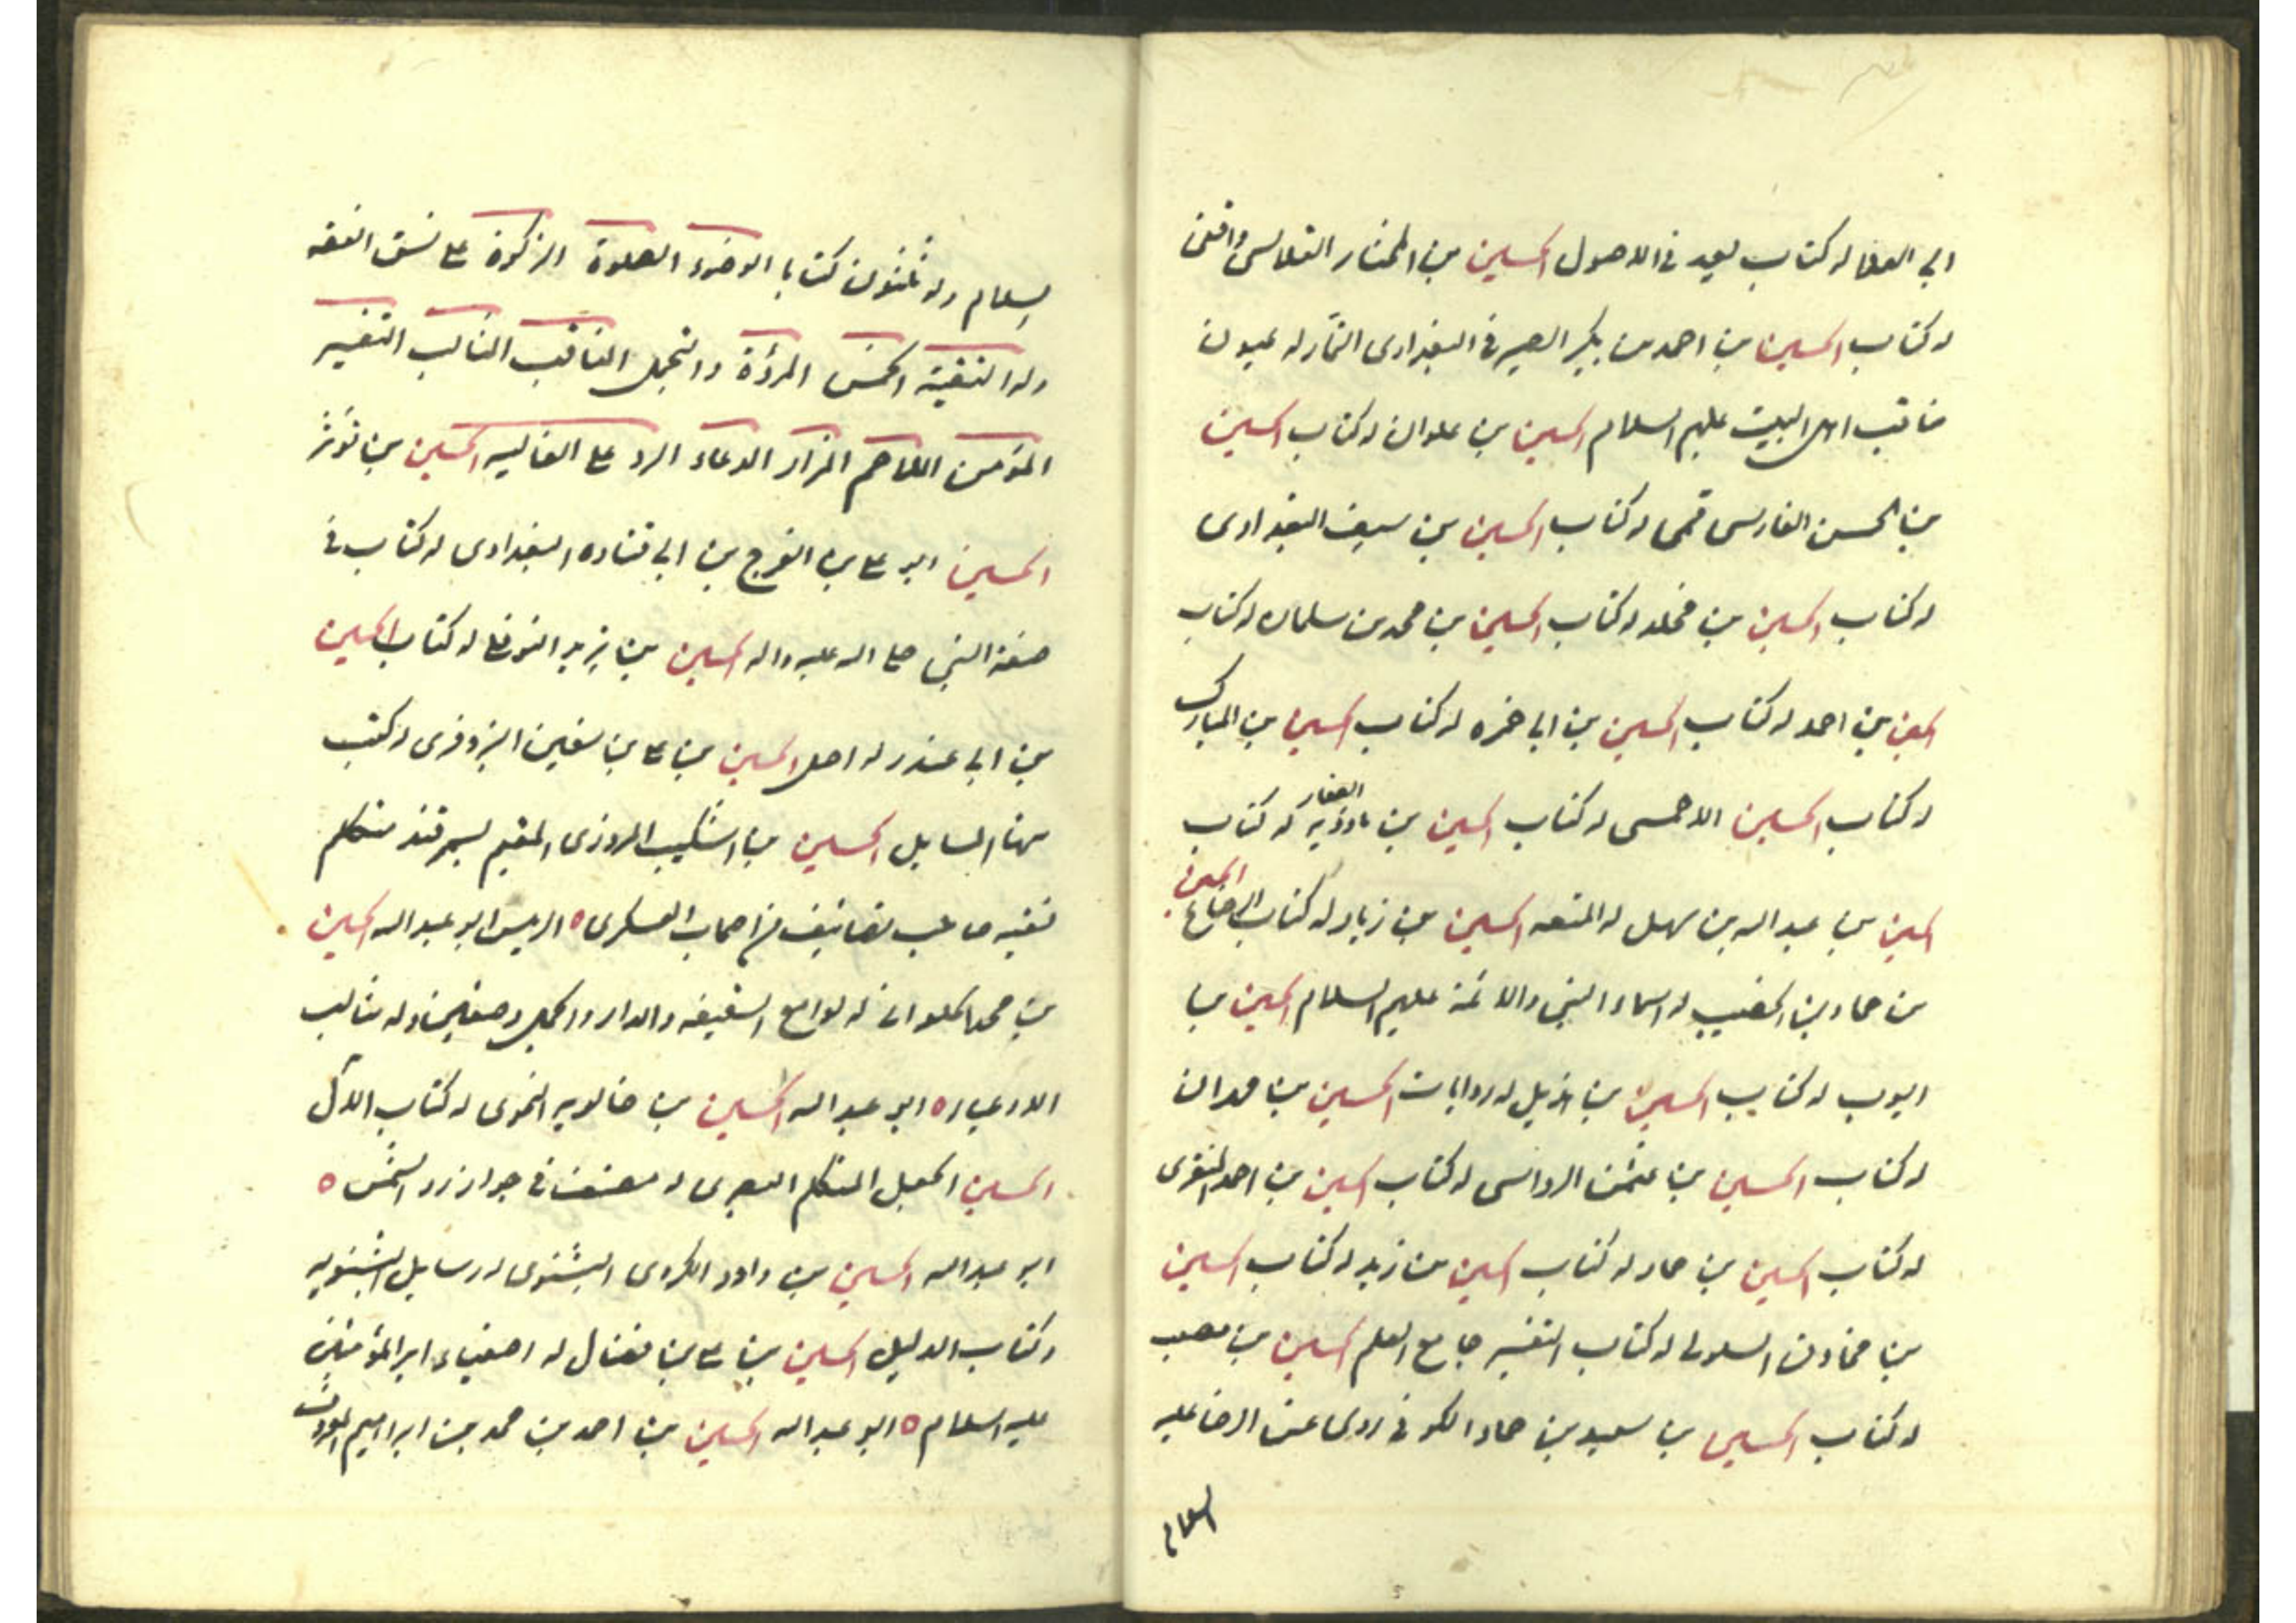 ابي العلا له كتاب يعد في الاصول الحسين بن المختار القلانسي واقفي
له كتاب الحسين بن احمد بن بكير الصيرفي البغدادي التمار له عيون
مناقب اهل البيت عليهم السلام الحسين بن علوان له كتاب الحسين
بن الحسن الفارسي قمي له كتاب الحسين بن سيف البغدادي
له كتاب الحسين بن مخلد له كتاب الحسين بن محمد بن سلمان له كتاب
الحسين بن احمد له كتاب الحسين بن ابي حمزه له كتاب الحسين بن المبارك
له كتاب الحسين الاحمسي له كتاب الحسين بن مادويه الصفار له كتاب
الحسين بن عبد الله بن سهل له المتعه الحسين بن زياد له كتاب الرضاع الحسين
بن حماد بن الخصيب له اسماء النبي والائمة عليهم السلام الحسين بن
ايوب له كتاب الحسين بن له روايات الحسين بن مهران
له كتاب الحسين بن عثمن الرواسي له كتاب الحسين بن احمد المنقري
له كتاب الحسين بن حماد له كتاب الحسين بن زيد له كتاب الحسين
بن مخارق السلولي له كتاب التفسير جامع العلم الحسين بن مصعب
له كتاب الحسين بن سعيد بن حماد الكوفي روى عن الرضا عليه
السلام
السلام وله ثلثون كتابا الوضوء الصلوة الزكوة على نسق الفقه
وله التقية الخمس المروة والتجمل المناقب المثالب التفسير
المؤمن الملاحم المزار الدعاء الرد على الغاليه الحسين بن ثوير
الحسين ابو علي بن الفرج بن ابي قتاده البغدادي له كتاب في
صفة النبي صلى الله عليه واله الحسين بن يزيد النوفلي له كتاب الحسين
بن ابي غندر له اصل الحسين بن علي بن سفين البزوفري له كتب
منها المسايل الحسين بن اشكيب المروزي المقيم بسمرقند متكلم
فقيه صاحب تصانيف من اصحاب العسكري ٥ الرييس ابو عبد الله الحسين
بن محمد الحلواني له لوامع السقيفه والدار والجمل وصفين وله مثالب
الادعياء ٥ ابو عبد الله الحسين بن خالويه النحوي له كتاب الآل
الحسين الجعل المتكلم البصري له مصنف في جواز رد الشمس ٥
ابو عبد الله الحسين بن داود الكردي البشنوي له رسايل البشنويه
وكتاب الدليل الحسين بن علي بن فضال له اصفياء امير المؤمنين
عليه السلام ٥ ابو عبد الله الحسين بن احمد بن محمد بن ابراهيم المعروف